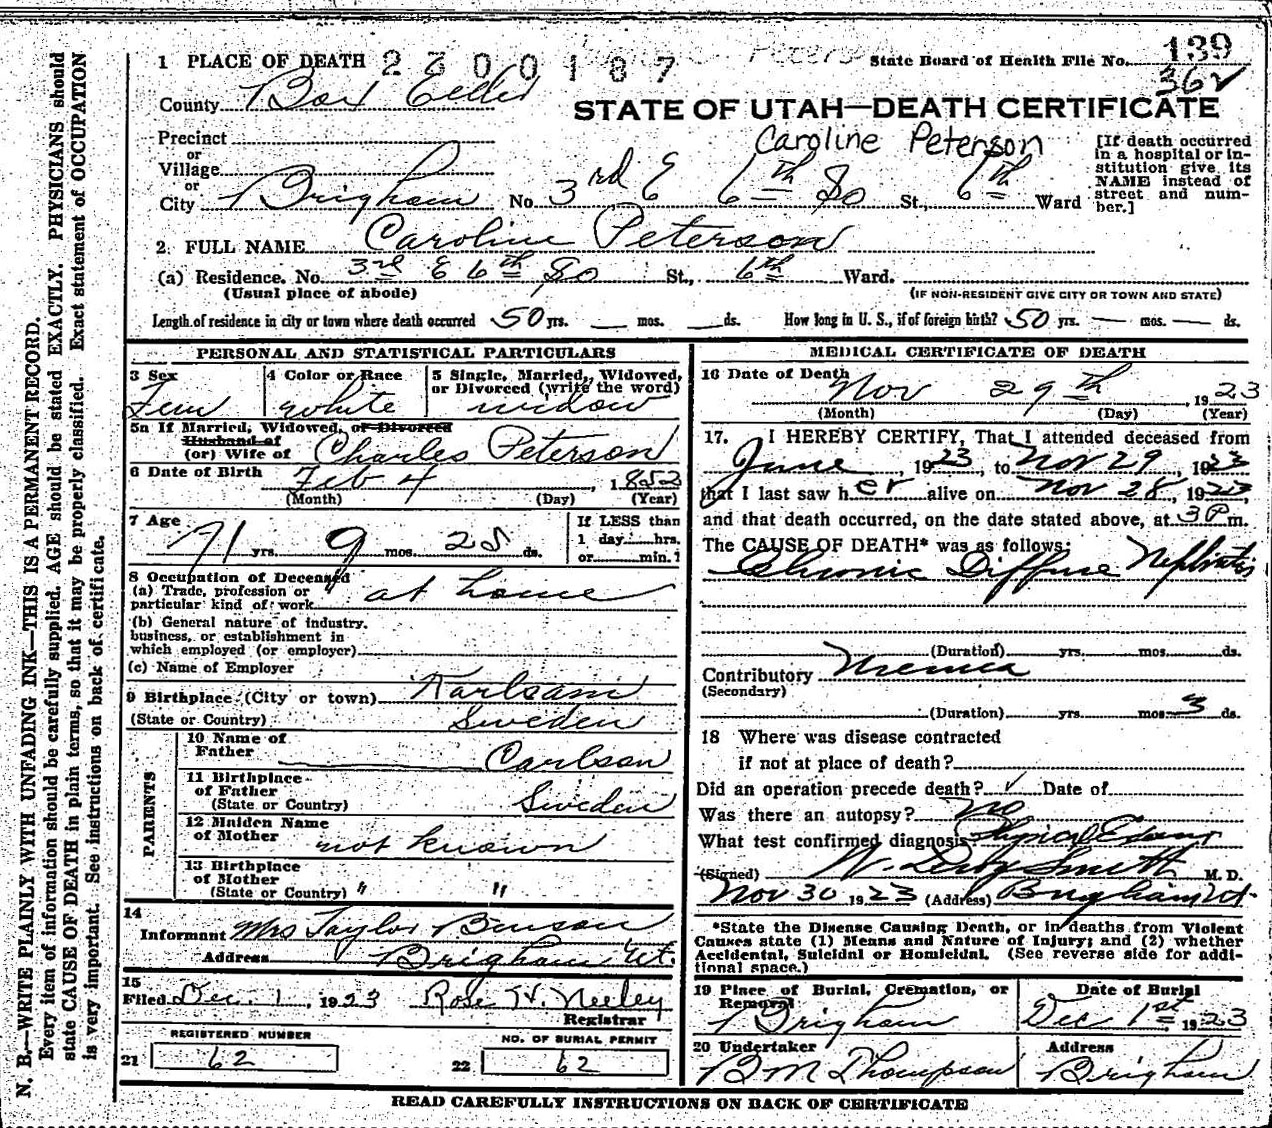 1 PLACE OF DEATH 2300187 Peterson State Board of Health File No. 139
County Box Elder 362
STATE OF UTAH—DEATH CERTIFICATE
Precinct
or
Village
or
City Brigham No. 3rd E 6th So St., 6th Ward
Caroline Peterson
[If death occurred in a hospital or in-
stitution give its
NAME instead of
street and num-
ber.]
2 FULL NAME Caroline Peterson
(a) Residence. No. 3rd E 6th So St., 6th Ward.
(Usual place of abode) (IF NON-RESIDENT GIVE CITY OR TOWN AND STATE)
Length of residence in city or town where death occurred 50 yrs. — mos. — ds. How long in U. S., if of foreign birth? 50 yrs. — mos. — ds.
PERSONAL AND STATISTICAL PARTICULARS
3 Sex Fem
4 Color or Race white
5 Single, Married, Widowed,
or Divorced (write the word)
widow
5a If Married, Widowed, or Divorced
Husband of
(or) Wife of Charles Peterson
6 Date of Birth Feb 4, 1852
(Month) (Day) (Year)
7 Age 71 yrs. 9 mos. 25 ds.
If LESS than
1 day hrs.
or min.?
8 Occupation of Deceased
(a) Trade, profession or
particular kind of work at home
(b) General nature of industry,
business, or establishment in
which employed (or employer)
(c) Name of Employer
9 Birthplace (City or town)
(State or Country) Sweden
PARENTS
10 Name of
Father Carlson
11 Birthplace
of Father
(State or Country) Sweden
12 Maiden Name
of Mother not known
13 Birthplace
of Mother
(State or Country) " "
14
Informant Mrs Taylor Benson
Address Brigham Ut.
15
Filed Dec. 1, 1923 Rose H. Neeley
Registrar
REGISTERED NUMBER
21 62
NO. OF BURIAL PERMIT
22 62
MEDICAL CERTIFICATE OF DEATH
16 Date of Death Nov 29th, 1923
(Month) (Day) (Year)
17. I HEREBY CERTIFY, That I attended deceased from
June, 1923, to Nov 29, 1923
that I last saw her alive on Nov 28, 1923,
and that death occurred, on the date stated above, at 3 P m.
The CAUSE OF DEATH* was as follows:
Chronic Diffuse Nephritis
(Duration) yrs. mos. ds.
Contributory Uremia
(Secondary)
(Duration) yrs. mos. 3 ds.
18 Where was disease contracted
if not at place of death?
Did an operation precede death? Date of
Was there an autopsy? no
What test confirmed diagnosis Physical Exam
(Signed) W. Smith M. D.
Nov 30 1923 (Address) Brigham Ut.
*State the Disease Causing Death, or in deaths from Violent
Causes state (1) Means and Nature of Injury; and (2) whether
Accidental, Suicidal or Homicidal. (See reverse side for addi-
tional space.)
19 Place of Burial, Cremation, or
Removal
Brigham
Date of Burial
Dec 1st 1923
20 Undertaker
B M Thompson
Address
Brigham
READ CAREFULLY INSTRUCTIONS ON BACK OF CERTIFICATE
N. B.—WRITE PLAINLY WITH UNFADING INK—THIS IS A PERMANENT RECORD.
Every item of information should be carefully supplied. AGE should be stated EXACTLY. PHYSICIANS should
state CAUSE OF DEATH in plain terms, so that it may be properly classified. Exact statement of OCCUPATION
is very important. See instructions on back of certificate.